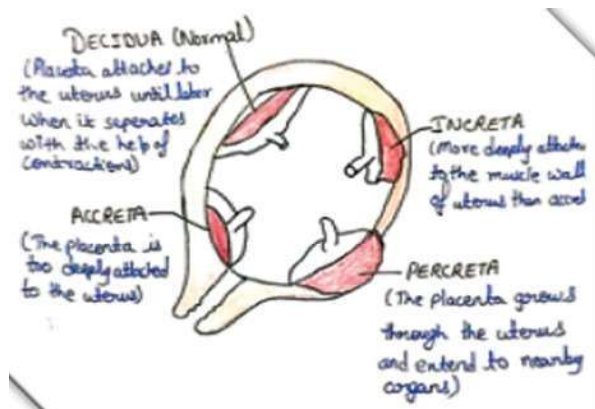 DECIDUA (Normal)
(Placeta attaches to
the uterus until labor
when it seperates
with the help of
contractions)
INCRETA
(More deeply attache
to the muscle wall
of uterus than accret
ACCRETA
(The placenta is
too deeply attached
to the uterus)
PERCRETA
(The placenta grows
through the uterus
and entend to nearby
organs)